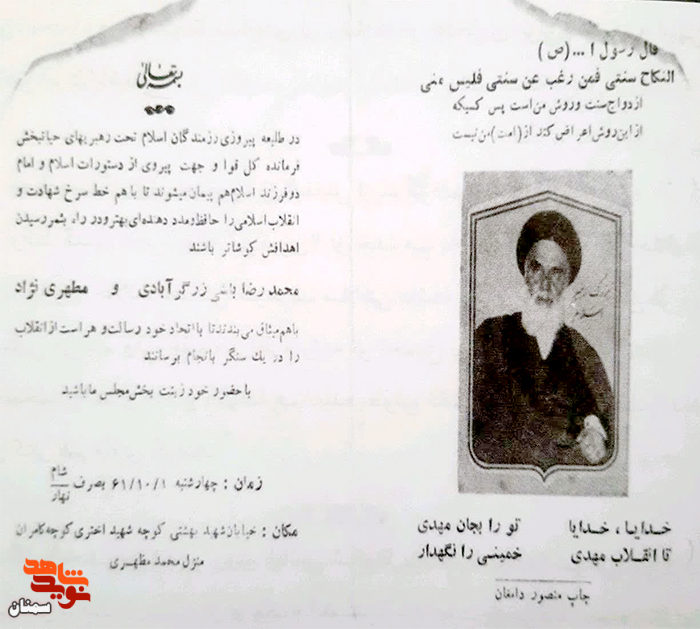 قال رسول ا... (ص)
النکاح سنتی فمن رغب عن سنتی فلیس منی
ازدواج سنت و روش من است پس کسیکه
از این روش اعراض کند از (امت) من نیست
بزرگ رهبر
اسلام
خدایا، خدایا تو را بجان مهدی
تا انقلاب مهدی خمینی را نگهدار
چاپ منصور دامغان
بسمه تعالی
در طلیعه پیروزی رزمندگان اسلام تحت رهبریهای حیاتبخش
فرمانده کل قوا و جهت پیروی از دستورات اسلام و امام
دو فرزند اسلام هم پیمان میشوند تا با هم خط سرخ شهادت و
انقلاب اسلامی را حافظ و مدد دهنده‌ای بهتر و در راه بثمر رسیدن
اهدافش کوشاتر باشند
محمد رضا باشی زرگرآبادی و مطهری نژاد
با هم میثاق می‌بندند تا با اتحاد خود رسالت و هراست از انقلاب
را در یک سنگر بانجام برسانند
با حضور خود زینت بخش مجلس ما باشید
زمان : چهارشنبه ۶۱/۱۰/۱ بصرف شام
نهار
مکان : خیابان شهید بهشتی کوچه شهید اختری کوچه کامران
منزل محمد مطهری
نوید شاهد
سمنان